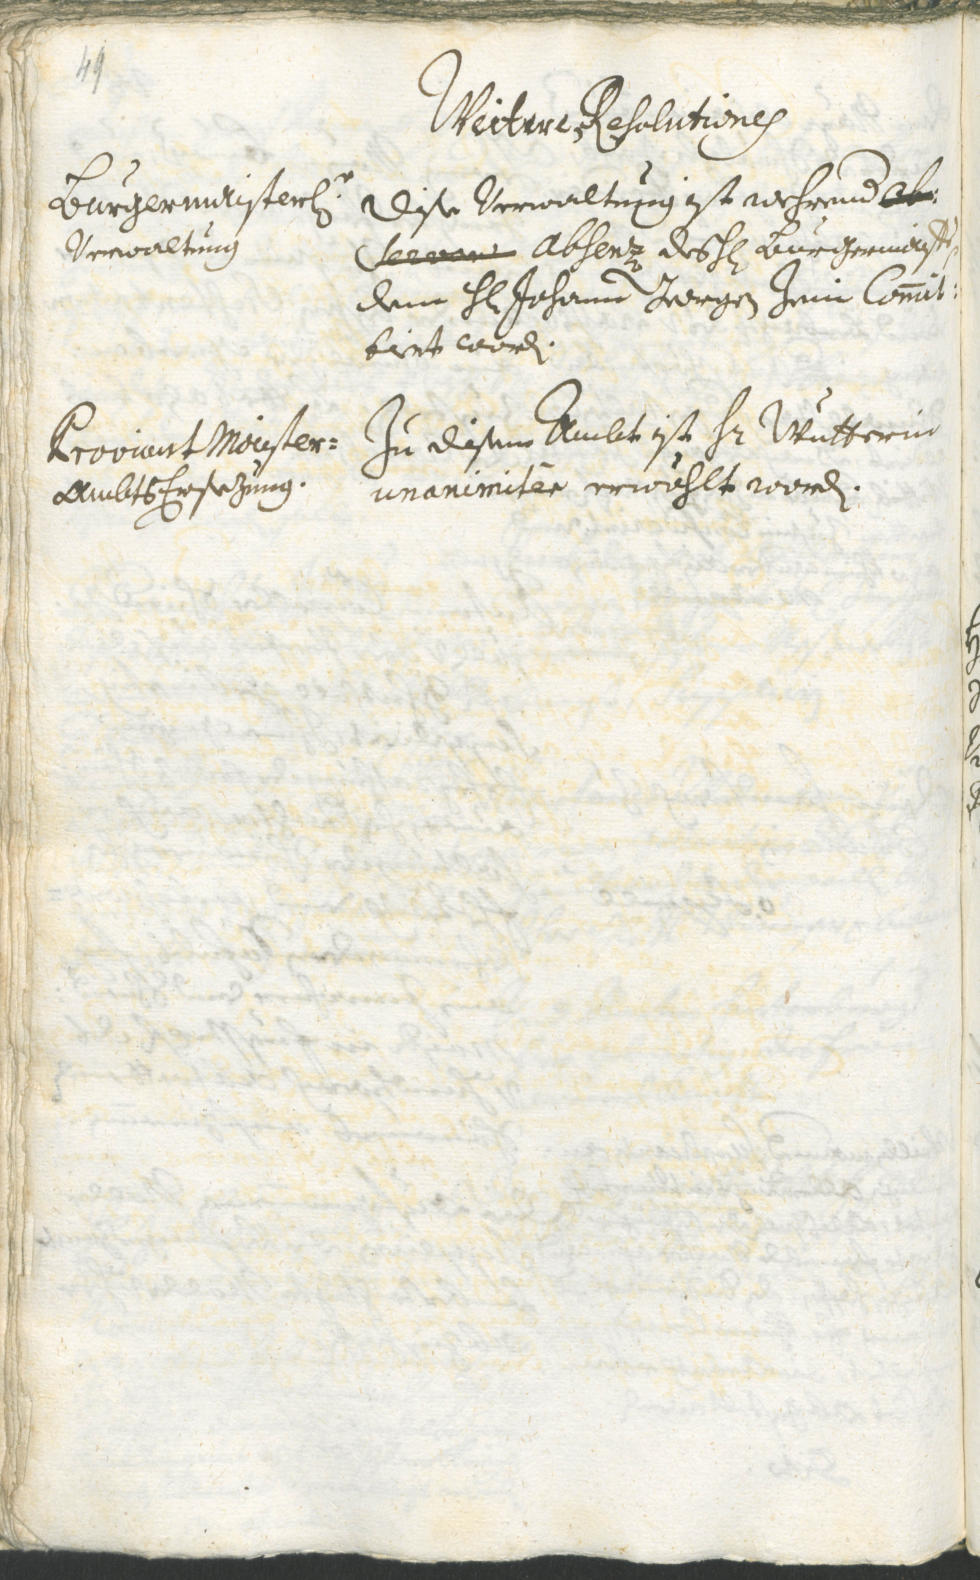 49
Weitere Resolutiones
Burgermaisterl:r
Verwaltung
Dise Verwaltung ist wehrend Ob:
servanz Absenz deß H: Burgermaist:
dem H: Johann Georgen Jenin Com̅it:
tirt word.
Proviant Maister=
Ambts Ersezung.
Zu disem Ambt ist Hr Wutterin
unanimiter erwöhlt word.